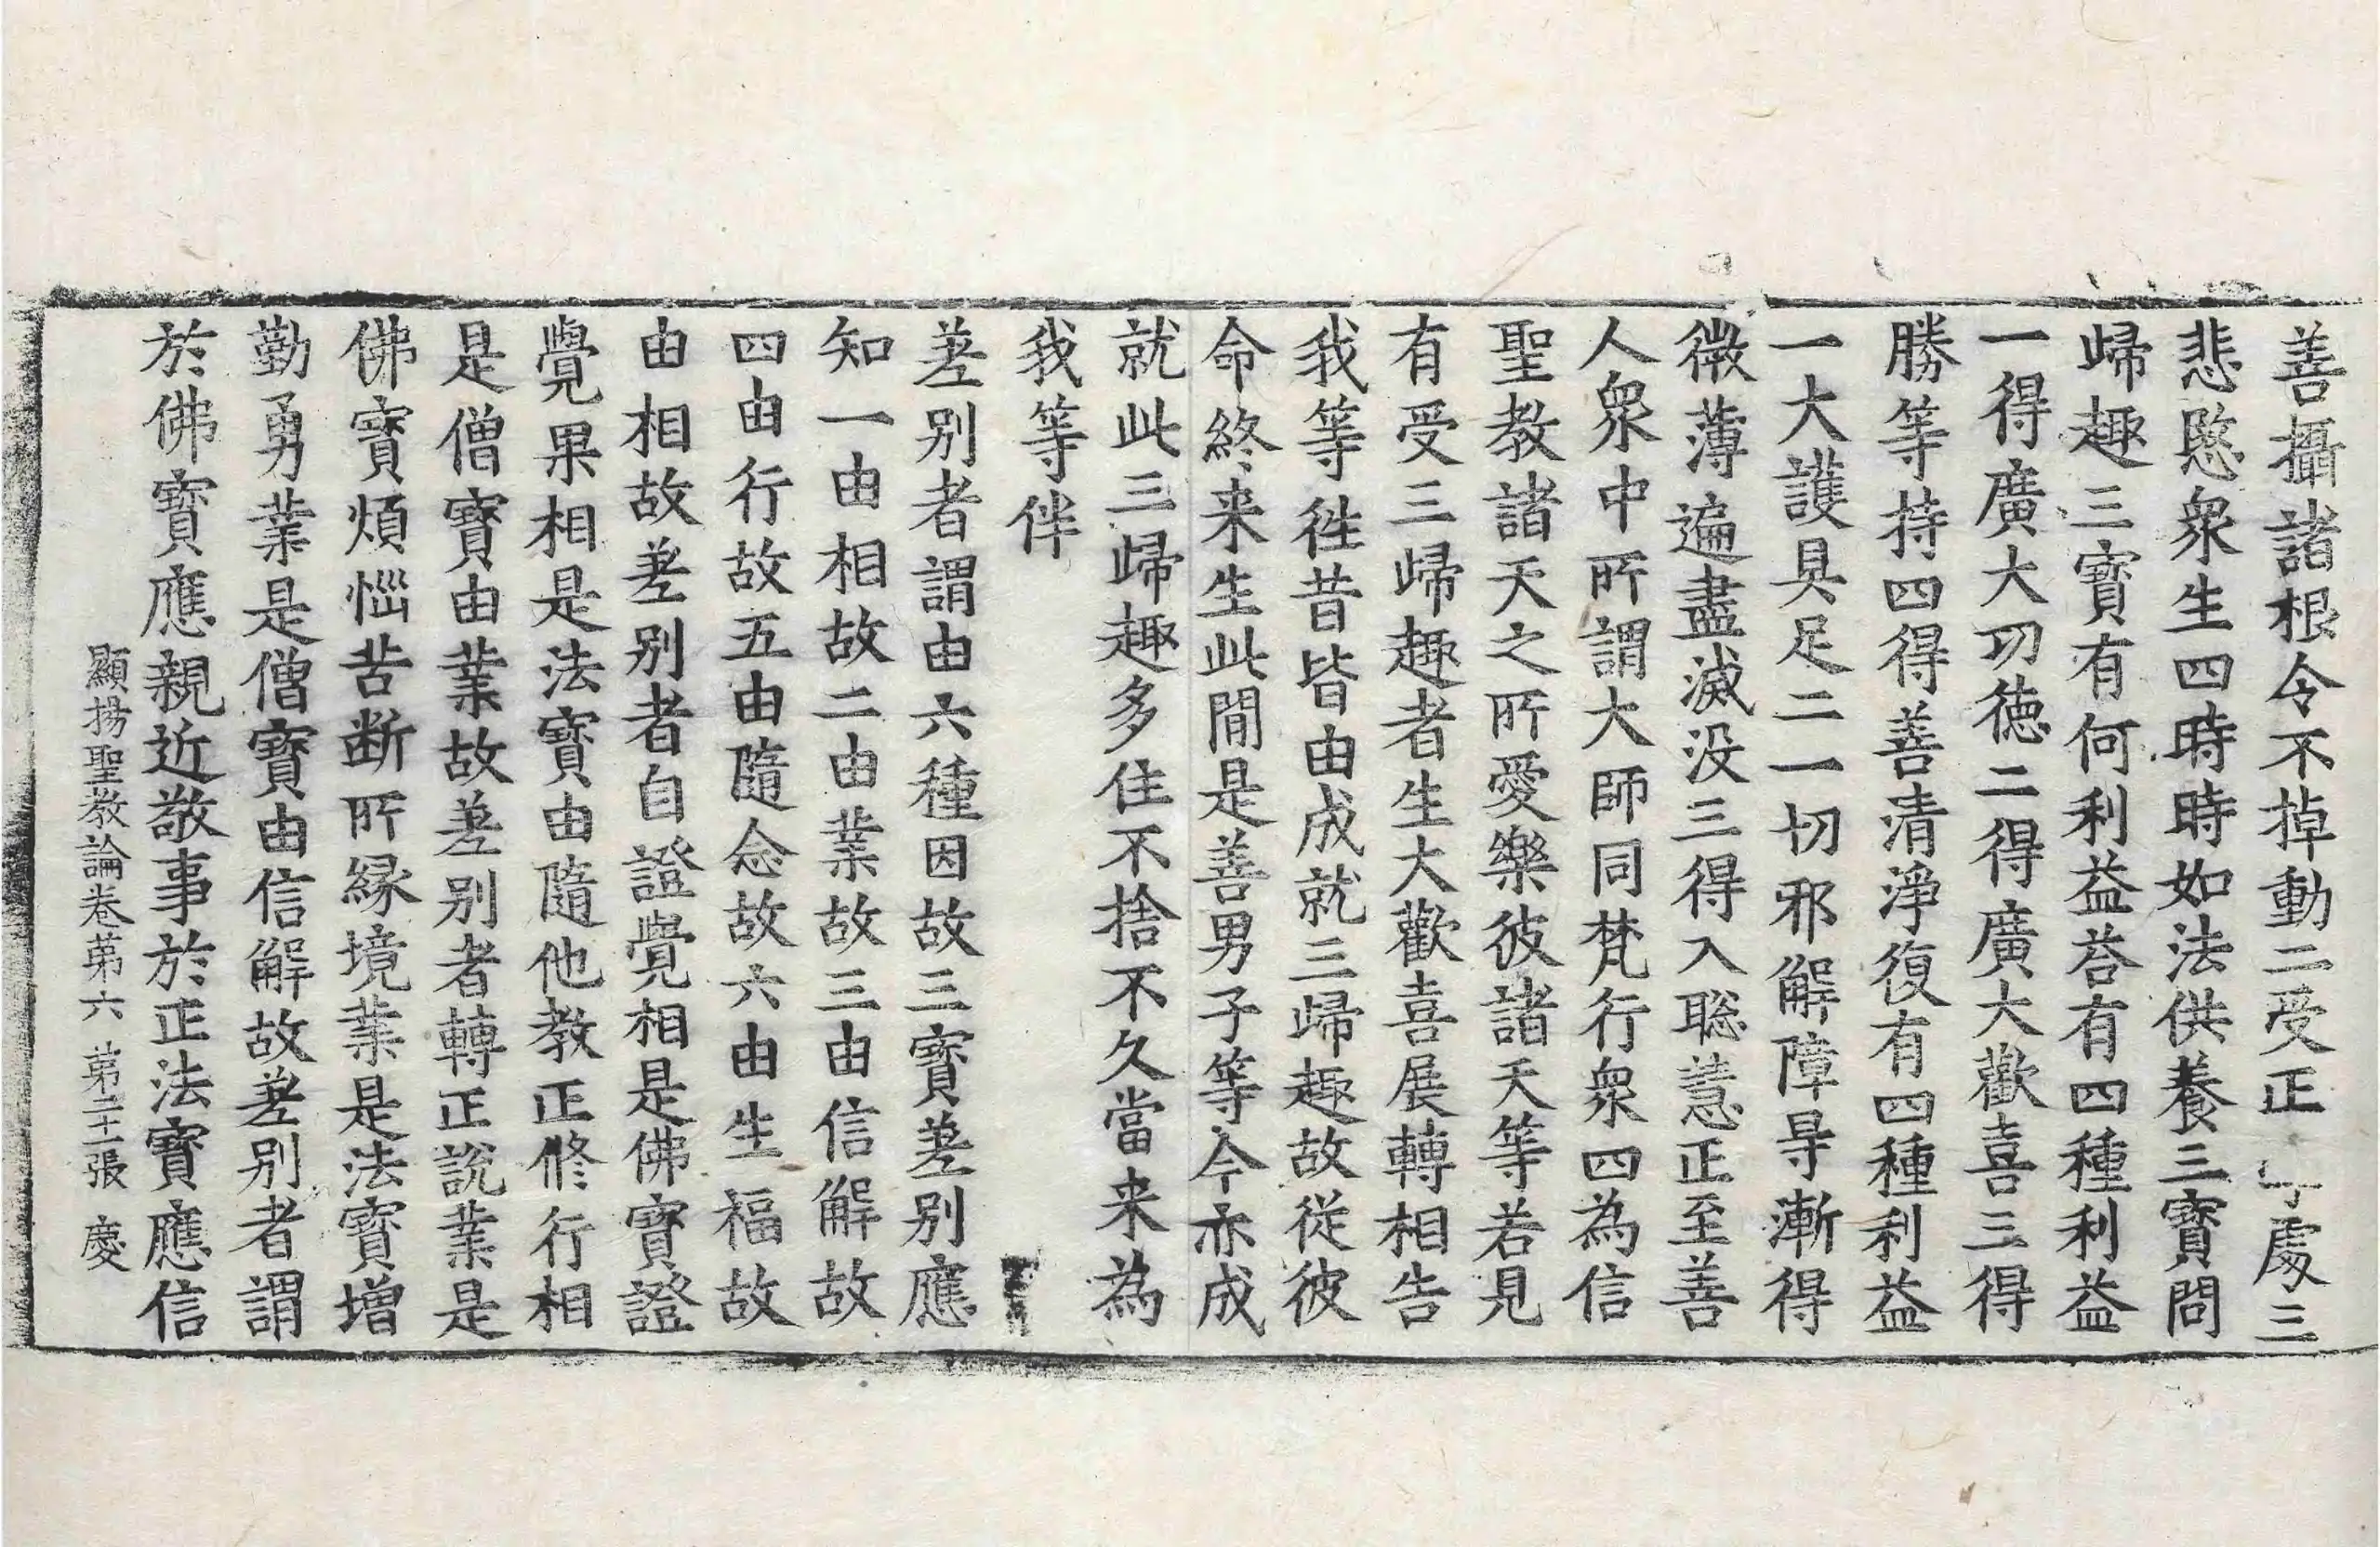 善攝諸根令不掉動二受正 處三
悲愍衆生四時時如法供養三寶問
歸趣三寶有何利益荅有四種利益
一得廣大功德二得廣大歡喜三得
勝等持四得善清淨復有四種利益
一大護具足二一切邪解障㝵漸得
微薄遍盡滅没三得入聡慧正至善
人衆中所謂大師同梵行衆四為信
聖教諸天之所愛樂彼諸天等若見
有受三歸趣者生大歡喜展轉相告
我等徃昔皆由成就三歸趣故從彼
命終来生此間是善男子等今亦成
就此三歸趣多住不捨不久當来為
我等伴
差别者謂由六種因故三寶差别應
知一由相故二由業故三由信解故
四由行故五由隨念故六由生福故
由相故差别者自證覺相是佛寶證
覺果相是法寶由隨他教正修行相
是僧寶由業故差别者轉正說業是
佛寶煩惱苦断所縁境業是法寶增
勤勇業是僧寶由信解故差别者謂
於佛寶應親近敬事於正法寶應信
顯揚聖教論卷第六 第二十一張 慶